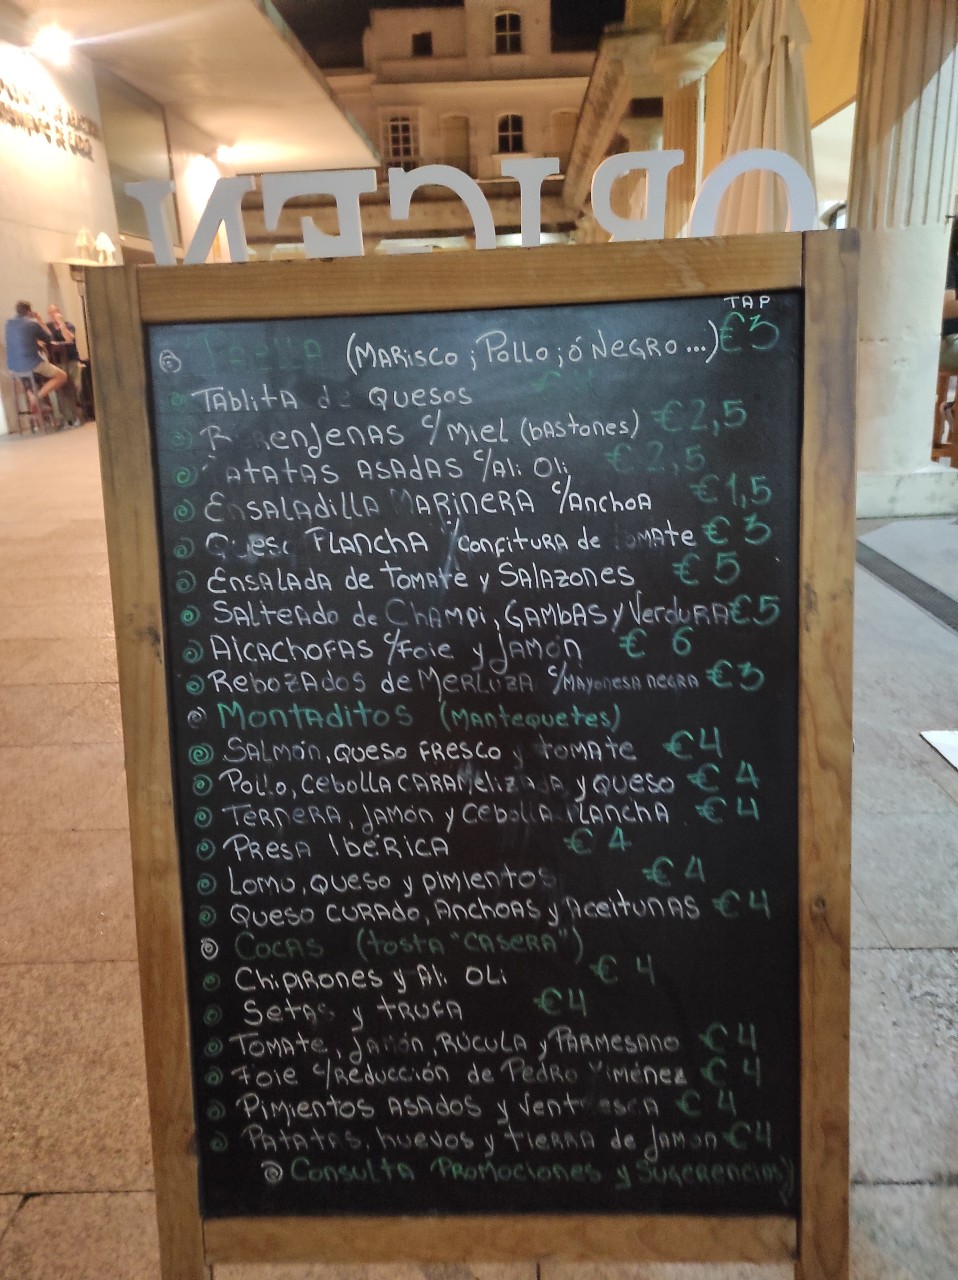 ORIGEN
TAP
(MARISCO ; POLLO ; ó NEGRO ...) €3
TAblitA de QUESOS
c/ Miel (bASTONES) €2,5
ASADAS c/Ali Oli €2,5
ENSALADILLA MARINERA c/AnchoA €1,5
Queso FLANCHA c/Confitura de tomate €3
ENSALADA de TOMATE y SALAZONES €5
SALTEADO de ChAMPI, GAMBAS y VerduRA €5
AlCACHOFAS c/Foie y JAMÓN €6
RebOZADOS de MERLUZA c/MAYONESA NEGRA €3
MONTADITOS (MANTEQUETES)
SALMÓN, QUESO FRESCO y TOMATE €4
Pollo, CEBOLLA CARAMELIZADA y QUESO €4
TERNERA, JAMÓN y CEBOLLA PLANCHA €4
PRESA IbÉRICA €4
LOMO, QUESO y PIMIENTOS €4
QUESO CURADO, ANCHOAS y ACEITUNAS €4
COCAS (TOSTA "CASERA")
ChIPIRONES y Ali OLi €4
SETAS y TRUFA €4
TOMATE, JAMÓN, RÚCULA y PARMESANO €4
Foie c/REDUCCIÓN de PEDRO XIMÉNEZ €4
PIMIENTOS ASADOS y VENTRESCA €4
PATATAS, huevos y TIERRA de JAMON €4
CONSULTA PROMOCIONES y SUGERENCIAS)